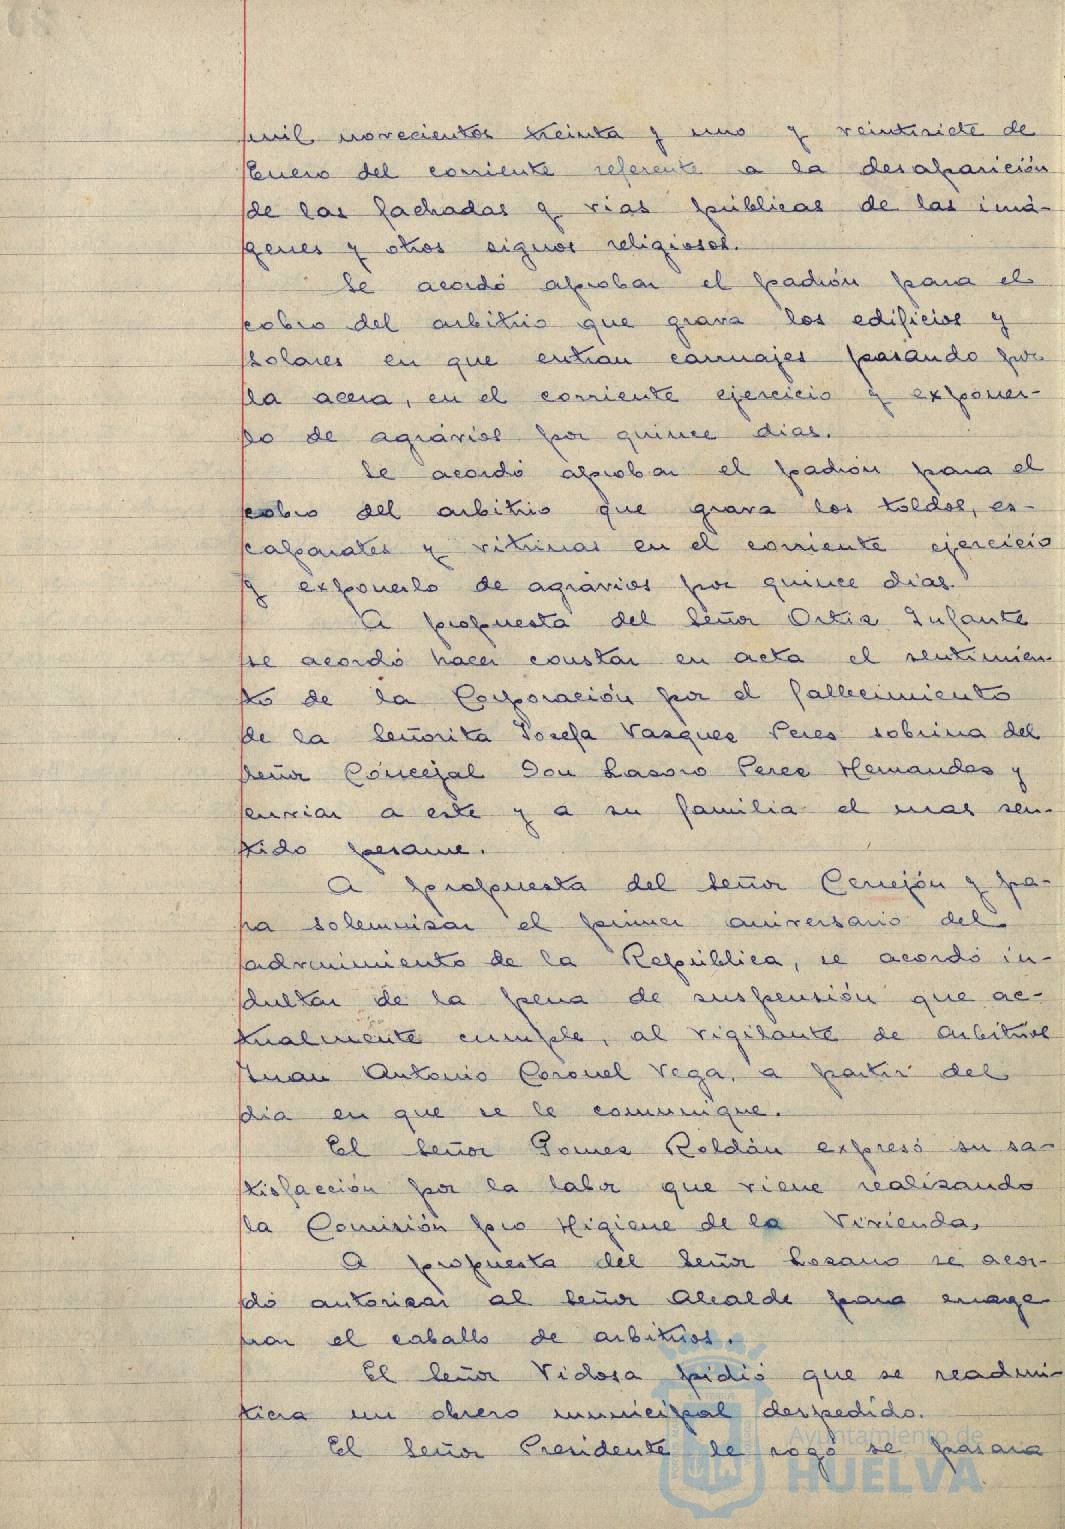 mil novecientos treinta y uno y veintisiete de
Enero del corriente referente a la desaparición
de las fachadas y vias públicas de las imá-
genes y otros signos religiosos.
Se acordó aprobar el padrón para el
cobro del arbitrio que grava los edificios y
solares en que entran carruajes pasando por
la acera, en el corriente ejercicio y exponer-
lo de agrávios por quince dias.
Se acordó aprobar el padrón para el
cobro del arbitrio que grava los toldos, es-
caparates y vitrinas en el corriente ejercicio
y exponerlo de agrávios por quince dias.
A propuesta del Señor Ortiz Infante
se acordó hacer constar en acta el sentimien-
to de la Corporación por el fallecimiento
de la Señorita Josefa Vazquez Peres sobrina del
Señor Concejal Don Lasaro Perez Hernandes y
enviar a este y a su familia el mas sen-
tido pesame.
A propuesta del Señor Cerrejón y pa-
ra solemnisar el primer aniversario del
advenimiento de la República, se acordó in-
dultar de la pena de suspensión que ac-
tualmente cumple, al vigilante de Arbitrios
Juan Antonio Coronel Vega, a partir del
dia en que se le comunique.
El Señor Gomez Roldán expresó su sa-
tisfacción por la labor que viene realizando
la Comisión pro Higiene de la Vivienda,
A propuesta del Señor Losano se acor-
dó autorisar al Señor Alcalde para enage
nar el caballo de arbitrios.
El Señor Vidosa pidió que se readmi-
tiera un obrero municipal despedido.
El Señor Presidente le rogó se pasara
Ayuntamiento de
HUELVA